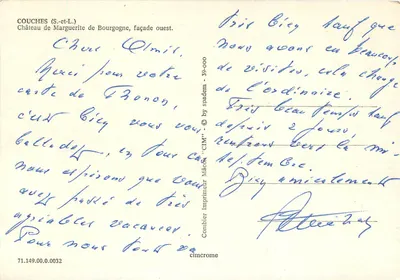 COUCHES (S.-et-L.)
Château de Marguerite de Bourgogne, façade ouest.
Chers Amis,
Merci pour votre
carte de Thonon,
c'est bien vous vous
balladez, en tous cas
nous espérons que vous
avez passé de très
agréables vacances.
Pour nous tout va
Combier Imprimeur Mâcon "CIM" - © by spadem - 59-000
très bien sauf que
nous avons eu beaucoup
de visites, cela change
de l'ordinaire.
Très beau temps sauf
depuis 2 jours,
rentrons vers la mi-
septembre
Bien amicalement
71.149.00.0.0032
cimcrome